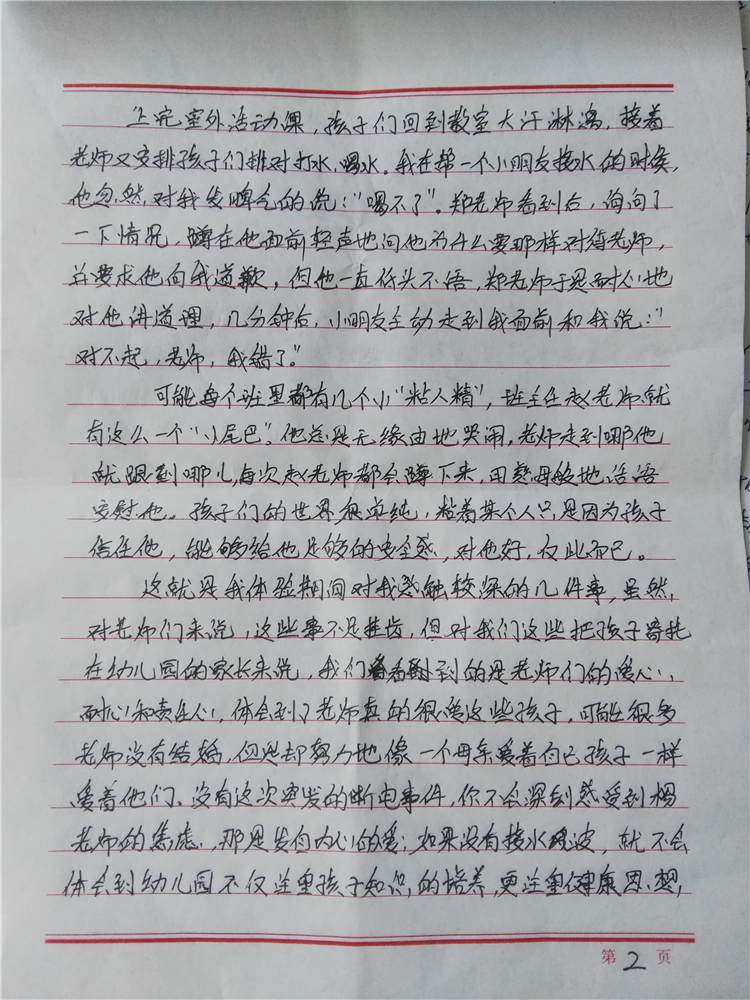 上完室外活动课，孩子们回到教室大汗淋漓，接着
老师又安排孩子们排对打水、喝水。我在帮一个小朋友接水的时候，
他忽然对我发脾气的说："喝不了"。郑老师看到后，询问了
一下情况，蹲在他面前轻声地问他为什么要那样对待老师，
并要求他向我道歉，但他一直低头不语，郑老师于是耐心地
对他讲道理，几分钟后，小朋友主动走到我面前和我说："
对不起，老师，我错了。"
可能每个班里都有几个小"粘人精"，班主任赵老师就
有这么一个"小尾巴"。他总是无缘由地哭闹，老师走到哪他
就跟到哪儿，每次赵老师都会蹲下来，用慈母般地话语
安慰他。孩子们的世界很单纯，粘着某个人只是因为孩子
信任他，能够给他足够的安全感，对他好，仅此而已。
这就是我体验期间对我感触较深的几件事，虽然，
对老师们来说，这些事不足挂齿，但对我们这些把孩子寄托
在幼儿园的家长来说，我们看到的是老师们的爱心、
耐心和责任心，体会到了老师真的很爱这些孩子，可能很多
老师没有结婚，但是却努力地像一个母亲爱着自己孩子一样
爱着他们。没有这次突发的断电事件，你不会深刻感受到杨
老师的焦虑，那是发自内心的爱；如果没有接水风波，就不会
体会到幼儿园不仅注重孩子知识的培养，更注重健康思想，
第2页